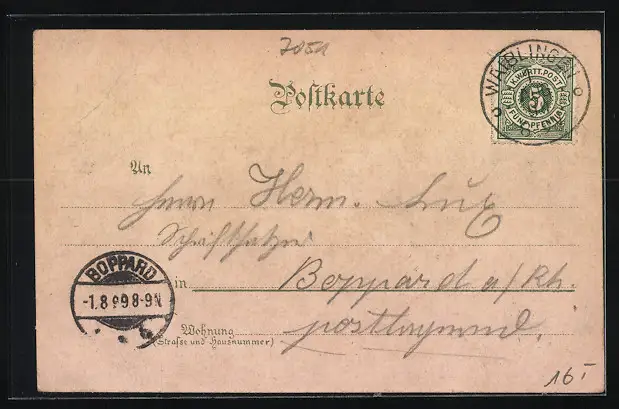 7051
WAIBLINGEN
K. WÜRTT. POST
5
FÜNF PFENNIG
Postkarte
An
Herrn Herm. Lux
Schriftsetzer
in Boppard a/Rh.
BOPPARD
-1.8.99 8-9N
postlagernd.
Wohnung
(Straße und Hausnummer)
16 I